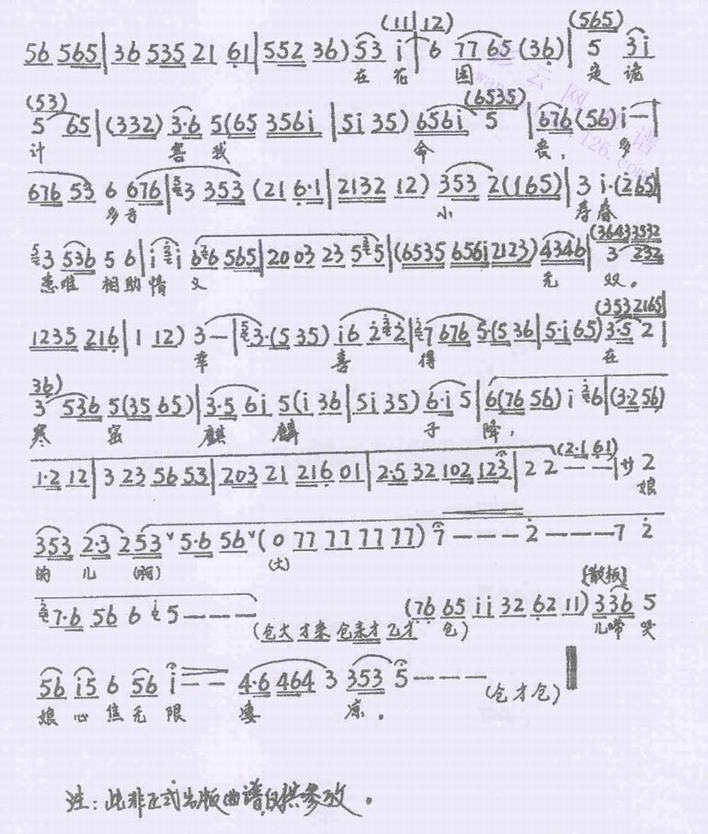 56 565 | 36 535 21 61 | 552 36) 53 i (11 | 12) 6 77 65 (36) | (565) 5 3i
在 花 园 定 诡
(53) 5 65 | (332) 3·6 5(65 356i | 5i 35) 656i (6535) 5 | 676 (56) i —
计 害 我 命 丧, 多
676 53 6 676 | 3 353 (21 6·1 | 2132 12) 353 2(165) | 3 i·(265)
多 小 寿春
3 536 5 6 | i i 6 565 | 20 03 23 5 5 | (6535 656i 2123) 4346 | (36432532) 3 232
患难 相助 情 义 无 双。
1235 216 | 1 12) 3 — | 3·(5 35) i6 2 2 | 7 676 5·(5 36 | 5·i 65) (3532165) 3·5 2
幸 喜 得 在
36) 3 536 5(35 65) | 3·5 6i 5(i 36 | 5i 35) 6·i 5 | 6(76 56) i 6 | (3·2 56)
寒 窑 麒 麟 子 降,
1·2 12 | 3 23 56 53 | 203 21 216 01 | 2·5 32 102 123 | 2 2 — — (2·1 61) | サ 2
娘
353 2·3 253 ˅ 5·6 56 ˅ (0 77 77 77 77) 7 — — — 2 — — — 7 2
的 儿 (啊) (大)
7·6 56 6 5 — — — — (仓大 才来 仓来才 乙才 (76 65 ii 32 62 11) 仓) [散板] 336 5
儿啼 哭
56 i5 6 56 i — — 4·6 464 3 353 5 — — — (仓才仓)
娘 心 焦 无 限 凄 凉。
注：此非正式出版曲谱仅供参改。